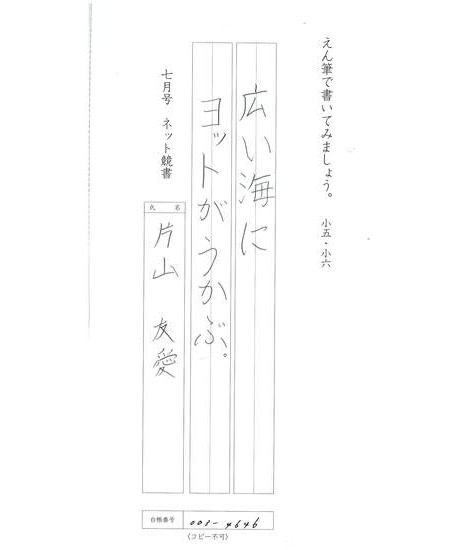 えん筆で書いてみましょう。 小五・小六
広い海に
ヨットがうかぶ。
七月号 ネット競書
氏名
片山 友愛
台帳番号 001-4646
(コピー不可)